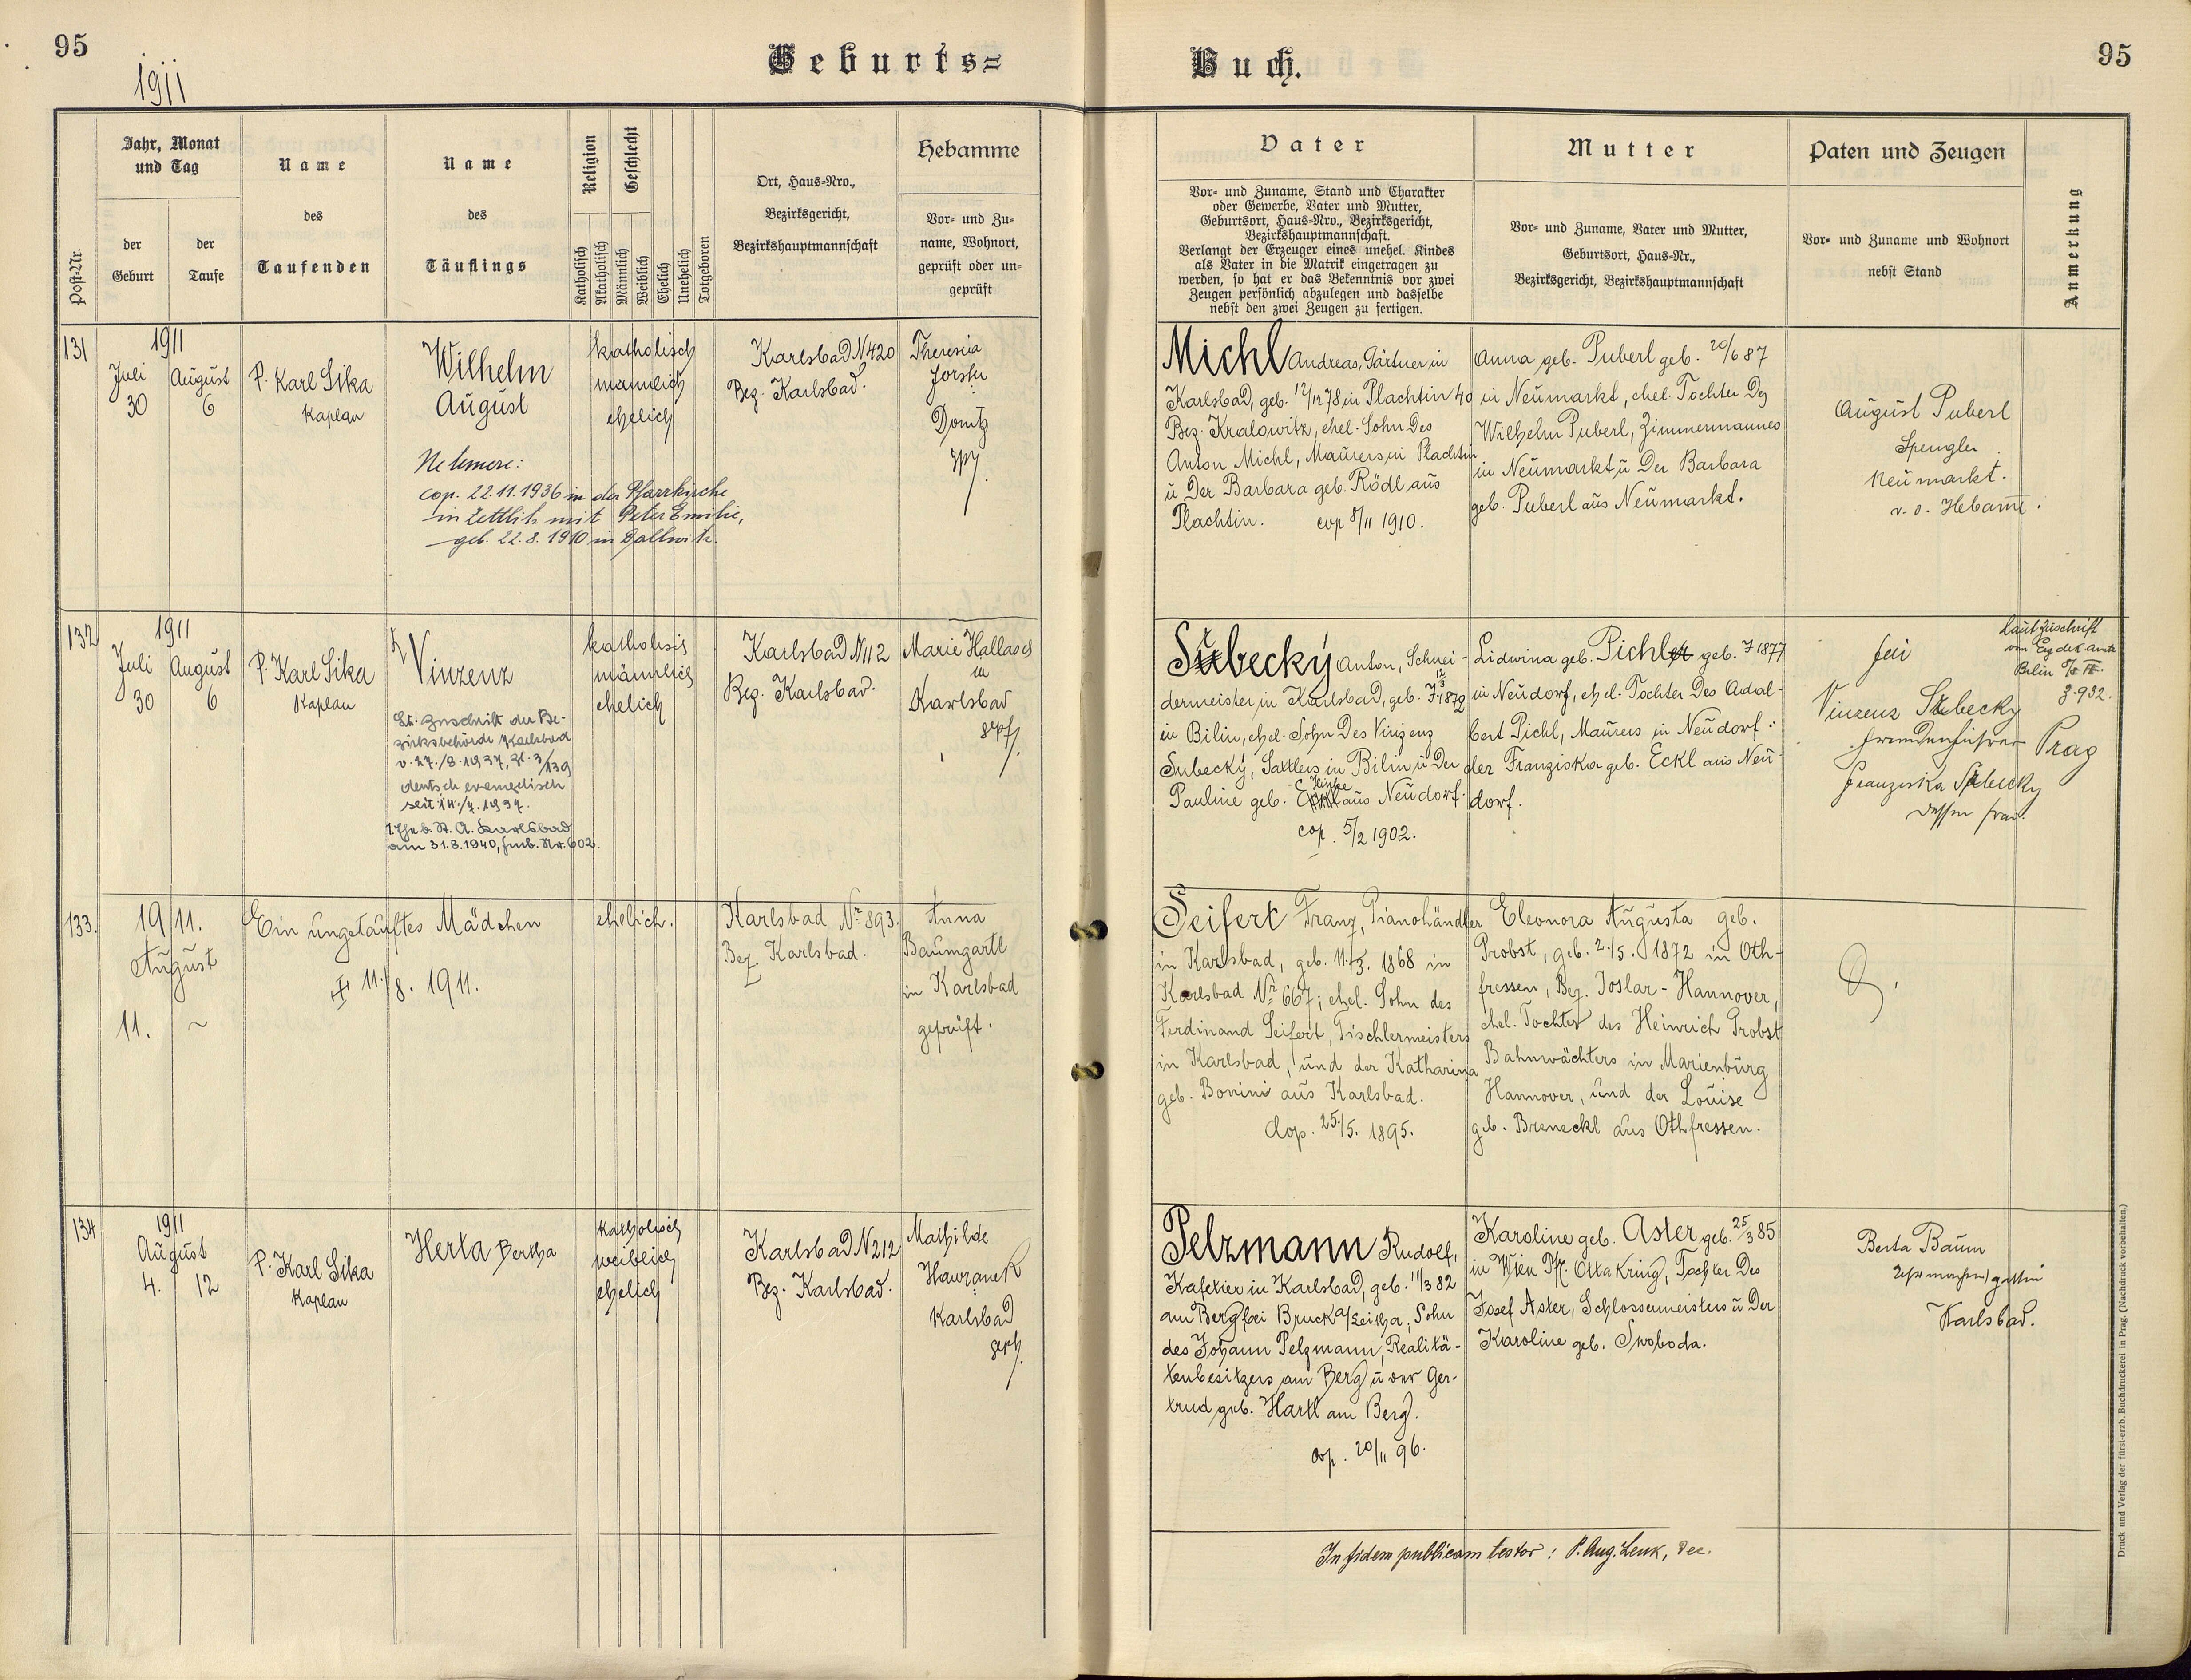 95
1911
Geburts=
Buch.
95
Post-Nr.
Jahr, Monat
und Tag
der
Geburt
der
Taufe
Name
des
Taufenden
Name
des
Täuflings
Religion
Katholisch
Akatholisch
Geschlecht
Männlich
Weiblich
Ehelich
Unehelich
Totgeboren
Ort, Haus-Nro.,
Bezirksgericht,
Bezirkshauptmannschaft
Hebamme
Vor- und Zu-
name, Wohnort,
geprüft oder un-
geprüft
Vater
Vor- und Zuname, Stand und Charakter
oder Gewerbe, Vater und Mutter,
Geburtsort, Haus-Nro., Bezirksgericht,
Bezirkshauptmannschaft.
Verlangt der Erzeuger eines unehel. Kindes
als Vater in die Matrik eingetragen zu
werden, so hat er das Bekenntnis vor zwei
Zeugen persönlich abzulegen und dasselbe
nebst den zwei Zeugen zu fertigen.
Mutter
Vor- und Zuname, Vater und Mutter,
Geburtsort, Haus-Nr.,
Bezirksgericht, Bezirkshauptmannschaft
Paten und Zeugen
Vor- und Zuname und Wohnort
nebst Stand
Anmerkung
131
1911
Juli
30
August
6
P. Karl Sika
Kaplan
Wilhelm
August
Ne temere:
cop. 22.11.1936 in der Pfarrkirche
in Zettlitz mit Peter Emilie,
geb. 22.8.1910 in Dallwitz.
katholisch
männlich
ehelich
Karlsbad N 420
Bez. Karlsbad.
Theresia
Donitz
Michl Andreas, Gärtner in
Karlsbad, geb. 12/12 78 in Plachtin 40
Bez. Kralowitz, ehel. Sohn Des
Anton Michl, Maurers in Plachtin
ü Der Barbara geb. Rödl aus
Plachtin. cop 8/11 1910.
Anna geb. Puberl geb. 20/6 87
in Neumarkt, ehel. Tochter Des
Wilhelm Puberl, Zimmermannes
in Neumarkt ü Der Barbara
geb. Puberl aus Neumarkt.
August Puberl
Spengler
Neumarkt.
v. o. Hebame.
132
1911
Juli
30
August
6
P. Karl Sika
Kaplan
Vinzenz
Lt. Zuschrift der Be-
zirksbehörde Karlsbad
v. 27./8.1937, Zl. 3/139
deutsch evangelisch
seit 14./7.1937.
1. Ehe b. St. A. Karlsbad
am 31.8.1940, Fmb. Nr. 602.
katholisch
männlich
ehelich
Karlsbad N 112
Bez. Karlsbad.
Marie Hallasch
in
Karlsbad
gepf.
Subecký Anton, Schnei-
dermeister in Karlsbad, geb. 1872
in Bilin, ehel. Sohn Des Vinzenz
Subecký, Sattlers in Bilin ü Der
Pauline geb. aus Neudorf.
cop. 5/2 1902.
Lidwina geb. Pichl geb. 1877
in Neudorf, ehel. Tochter Des Adal-
bert Pichl, Maurers in Neudorf ü
der Franziska geb. Eckl aus Neu-
dorf.
Vinzenz Subecky
Fremdenführer Prag
Franziska Subecky
dessen Frau.
Laut Zuschrift
Bilin
Z. 932.
133.
1911.
August
11. ~
Ein ungetauftes Mädchen
11./8. 1911.
ehelich.
Karlsbad Nr 893.
Bez. Karlsbad.
Anna
Baumgartl
in Karlsbad
geprüft.
Seifert Franz, Pianohändler
in Karlsbad, geb. 11./3. 1868 in
Karlsbad Nr 667; ehel. Sohn des
Ferdinand Seifert, Tischlermeisters
in Karlsbad, und der Katharina
geb. Bonini aus Karlsbad.
Cop. 25./5. 1895.
Eleonora Augusta geb.
Probst, geb. 2./5. 1872 in Oth-
fressen, Bez. Goslar-Hannover,
ehel. Tochter des Heinrich Probst
Bahnwächters in Marienburg
Hannover, und der Louise
geb. Breneckl aus Othfressen.
134
1911
August
4. 12
P. Karl Sika
Kaplan
Herta Bertha
katholisch
weiblich
ehelich
Karlsbad N 212
Bez. Karlsbad.
Mathilde
Hawranek
Karlsbad
geph.
Pelzmann Rudolf,
Kafetier in Karlsbad, geb. 11/3 82
am Berg bei Bruck a/Leitha, Sohn
des Johann Pelzmann, Realitä-
tenbesitzers am Berg ü der Ger-
trud geb. Hartl am Berg.
cop. 20/11 96.
Karoline geb. Aster geb. 25/3 85
in Wien Pf. Ottakring, Tochter Des
Josef Aster, Schlossermeisters ü Der
Karoline geb. Swoboda.
Berta Baum
Uhrmachersgattin
Karlsbad.
In fidem publicam testor: P. Aug. Lenk, Dec.
Druck und Verlag der fürst-erzb. Buchdruckerei in Prag. (Nachdruck vorbehalten.)